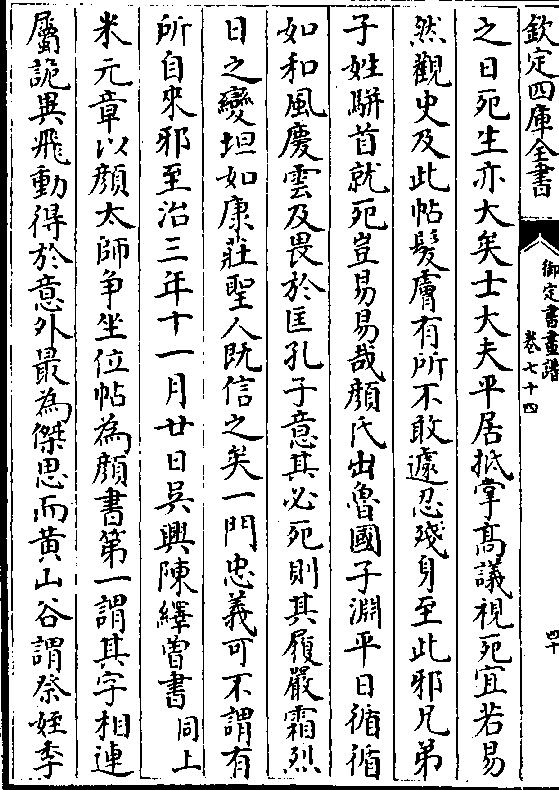 欽定四庫全書
御定書畫譜
卷七十四
四十
之日死生亦大矣士大夫平居抵掌高議視死宜若易
然觀史及此帖髮膚有所不敢遽忍殘身至此邪兄弟
子姓駢首就死豈易易哉顔氏出魯國子淵平日循循
如和風慶雲及畏於匡孔子意其必死則其履嚴霜烈
日之變坦如康莊聖人既信之矣一門忠義可不謂有
所自來邪至治三年十一月廿日吳興陳繹曾書 同上
米元章以顔太師争坐位帖為顔書第一謂其字相連
屬詭異飛動得於意外最為傑思而黃山谷謂祭姪季